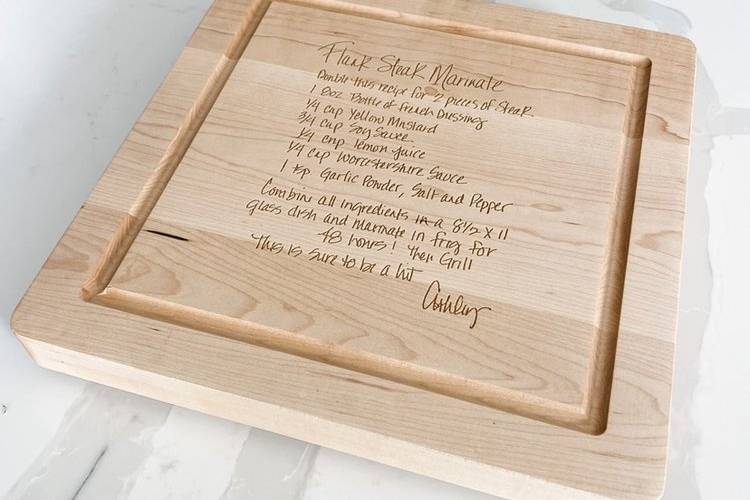 Flank Steak Marinate
Double this recipe for 2 pieces of steak
1 8oz Bottle of French Dressing
1/4 cup Yellow Mustard
3/4 cup Soy Sauce
1/4 cup lemon juice
1/4 cup Worcestershire Sauce
1 tsp Garlic Powder, Salt and Pepper
Combine all ingredients in a 8 1/2 X 11
glass dish and marinate in frig for
48 hours! Then Grill
This is sure to be a hit
Ashley